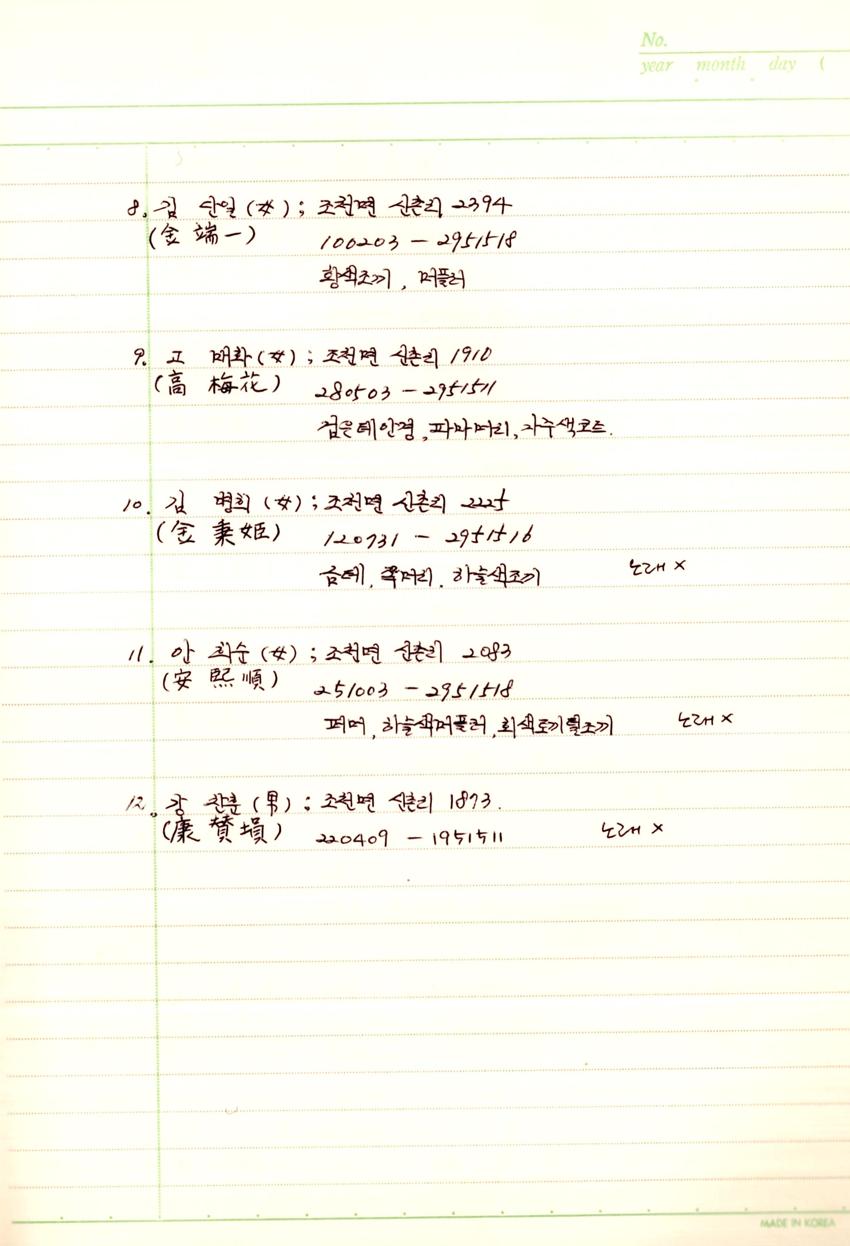 No.
year month day (
8. 김 단일 (女) ; 조천면 신촌리 2394
(金 端一) 100203 - 2951518
황색조끼, 머플러
9. 고 매화 (女) ; 조천면 신촌리 1910
(高 梅花) 280503 - 2951511
검은테안경, 파마머리, 자주색코트.
10. 김 병희 (女) ; 조천면 신촌리 2225
(金 秉姬) 120731 - 2951516
금테, 쪽머리. 하늘색조끼 노래 ×
11. 안 희순 (女) ; 조천면 신촌리 2083
(安 熙順) 251003 - 2951518
퍼머, 하늘색머플러, 회색토끼털조끼 노래 ×
12. 강 찬훈 (男) ; 조천면 신촌리 1873.
(康 賛塤) 220409 - 1951511 노래 ×
MADE IN KOREA